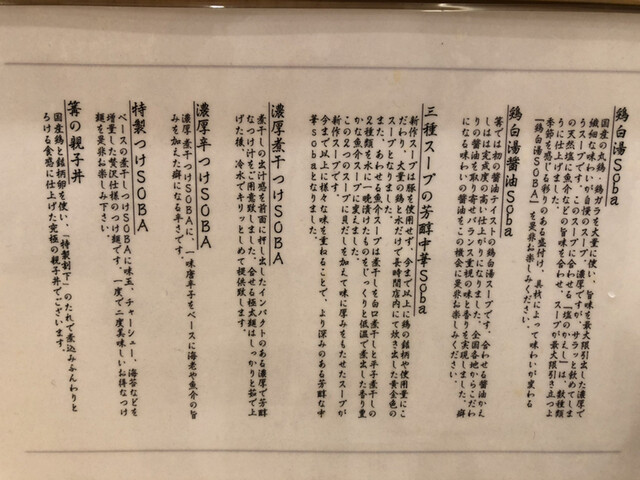 鶏白湯Soba
国産の丸鶏、鶏ガラを大量に使い、旨味を最大限引出した濃厚で
繊細な味わいが自慢のスープ。濃厚ですが、サラッと飲めてしま
うスープです。このスープに合わせる「塩のかえし」は、数種類
の天然塩に魚介などの旨味を合わせ、スープが最大限引き立つよ
うに仕上げました。
季節を感じる彩りのある盛付け、具材によって味わいが変わる
「鶏白湯SOBA」を是非お楽しみください。
鶏白湯醤油Soba
篝では初の醤油テイストの鶏白湯スープです。合わせる醤油かえ
しは完成度の高い仕上がりになりました。全国各地からこだわ
りの醤油を取り寄せバランス重視の味と香りを実現しました。癖
になる味わいの醤油をこの機会に是非お楽しみください。
三種スープの芳醇中華Soba
新作スープは豚を使用せず、今まで以上に鶏の銘柄や使用量にこ
だわり、大量の鶏と水だけで長時間店内にて炊き出した黄金色の
スープとなりました。
また、あわせる魚介スープは煮干しを白口煮干しと平子煮干しの
2種類を水出し後焼けたものをじっくりと低温で煮出した香り豊
かな魚介スープに変えました。
この2つのスープに貝だしを加えて味に厚みをもたせたスープが
新作スープです。
今まで以上に様々な味を重ねることで、より深みのある芳醇な中
華sobaとなりました。
濃厚煮干つけSOBA
煮干しの出汁感を前面に押し出したインパクトのある濃厚で芳醇
なつけ汁をご用意致しました。合せる極太麺はしっかりと茹で上
げた様、冷水でキリッとしめて提供致します。
濃厚辛つけSOBA
濃厚煮干つけSOBAに、一味唐辛子をベースに海老や魚介の旨
みを加えた癖になる辛さです。
特製つけSOBA
ベースの煮干しつけSOBAに味玉、チャーシュー、海苔などを
増量した贅沢仕様のつけ麺です。一度で二度美味しいお得なつけ
麺を是非お楽しみ下さい。
篝の親子丼
国産鶏と銘柄卵を使い、「特製割下」のたれで煮込みふんわりと
ろける食感に仕上げた究極の親子丼でございます。